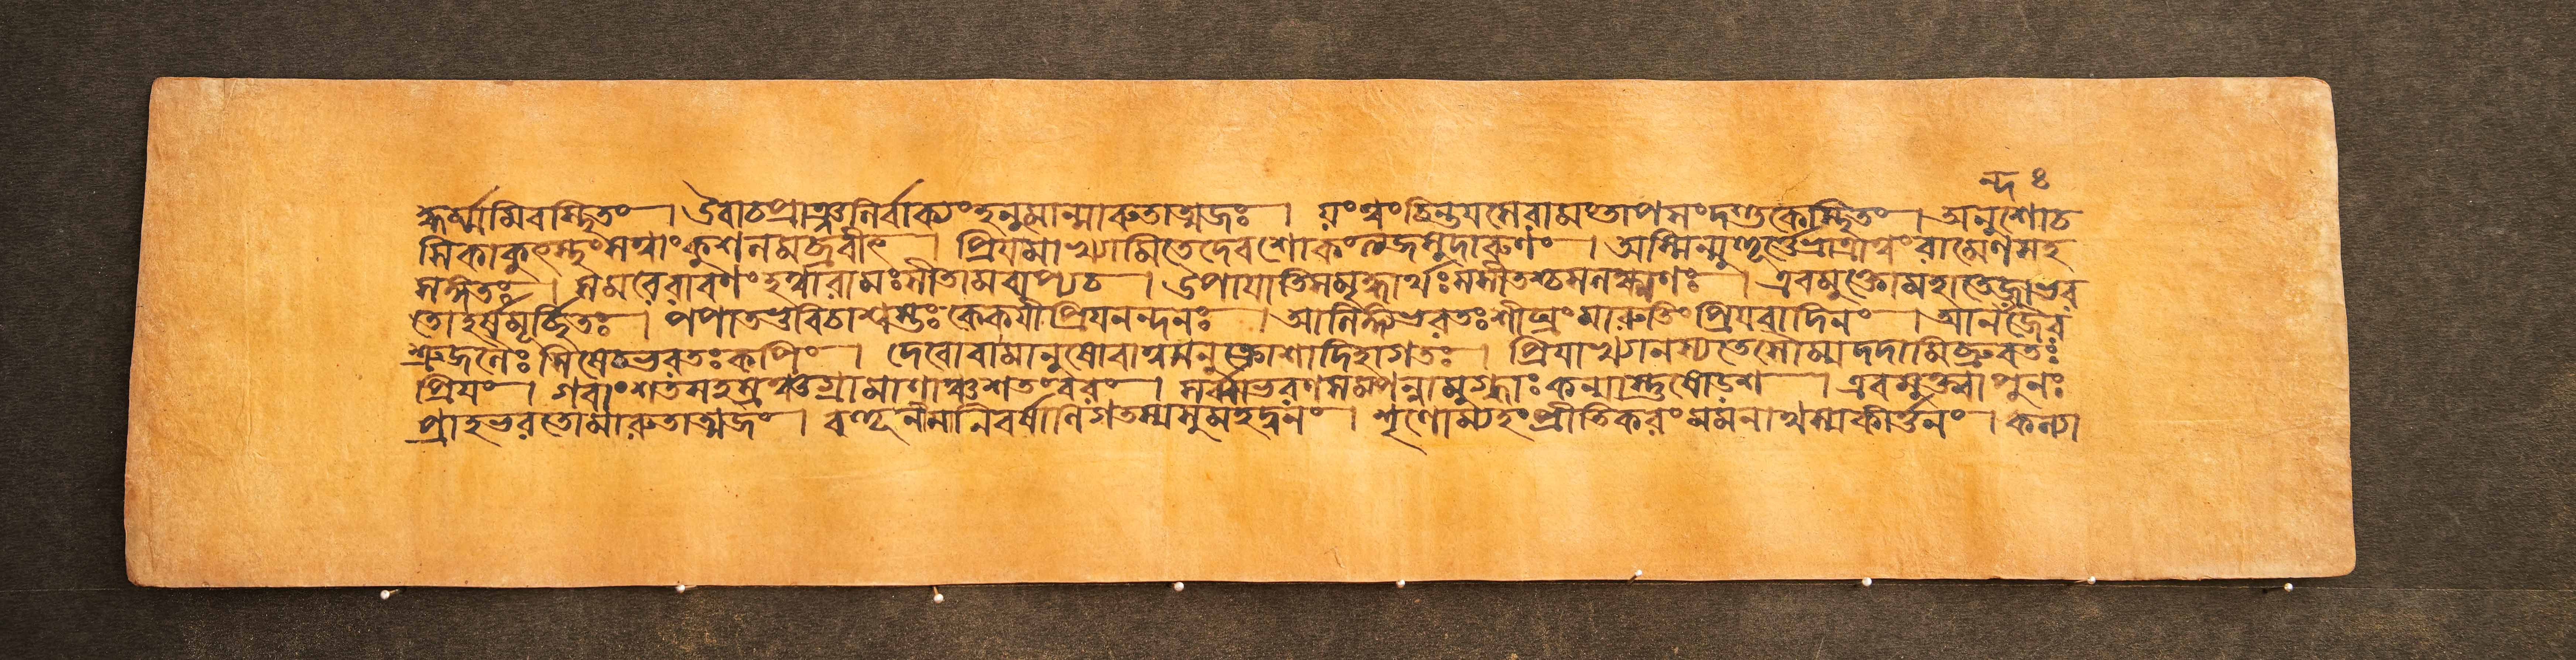 ন্দঃ
হধর্ম্মমিবাস্থিতং । উবাচপ্রাঞ্জলির্বাক্যংহনুমান্মারুতাত্মজঃ । যংত্বংচিন্তয়সেরামংতাপসংদণ্ডকেস্থিতং । অনুশোচ
সিকাকুৎস্থংসত্বাংকুশলমব্রবীৎ । প্রিয়মাখ্যামিতেদেবশোকংত্যজসুদারুণং । অস্মিন্মুহূর্ত্তেভ্রাত্রাত্বংরামেণসহ
সঙ্গতঃ । সমরেরাবণংহত্বারামঃসীতামবাপ্যচ । উপায়াতিসমৃদ্ধার্থঃসসীতশ্চসলক্ষ্মণঃ । এবমুক্তোমহাতেজাভর
তোহর্ষমূর্চ্ছিতঃ । পপাতভুবিচাশ্বস্তঃকেকয়ীপ্রিয়নন্দনঃ । আলিঙ্গ্যভরতঃশীঘ্রংমারুতিংপ্রিয়বাদিনং । আনন্দজৈর
শ্রুজলৈঃসিষেচভরতঃকপিং । দেবোবামানুষোবাত্বমনুক্রোশাদিহাগতঃ । প্রিয়াখ্যানস্যতেসৌম্যদদামিব্রুবতঃ
প্রিয়ং । গবাংশতসহস্রঞ্চগ্রামাণাঞ্চশতংবরং । সর্ব্বাভরণসম্পন্নামুগ্ধাঃকন্যাস্তুষোড়শ । এবমুক্ত্বাপুনঃ
প্রাহভরতোমারুতাত্মজং । বহূনীমানিবর্ষাণিগতস্যসুমহদ্বনং । শৃণোম্যহংপ্রীতিকরংমমনাথস্যকীর্ত্তনং । কল্যা